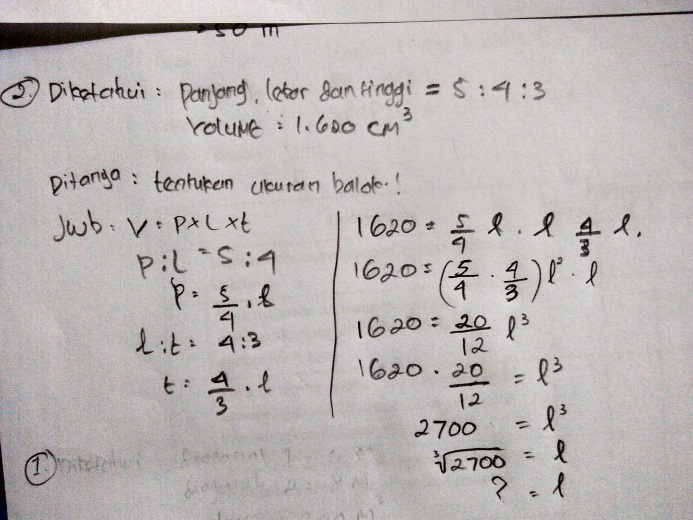 50 m
2. Diketahui : Panjang, lebar dan tinggi = 5 : 4 : 3
Volume = 1.620 cm³
Ditanya : tentukan ukuran balok !
Jwb : V = P x L x t
P : L = 5 : 4
P = 5/4 . l
l : t = 4 : 3
t = 4/3 . l
1620 = 5/4 l . l 4/3 l.
1620 = (5/4 . 4/3) l² . l
1620 = 20/12 l³
1620 . 20/12 = l³
2700 = l³
∛2700 = l
? = l
1.